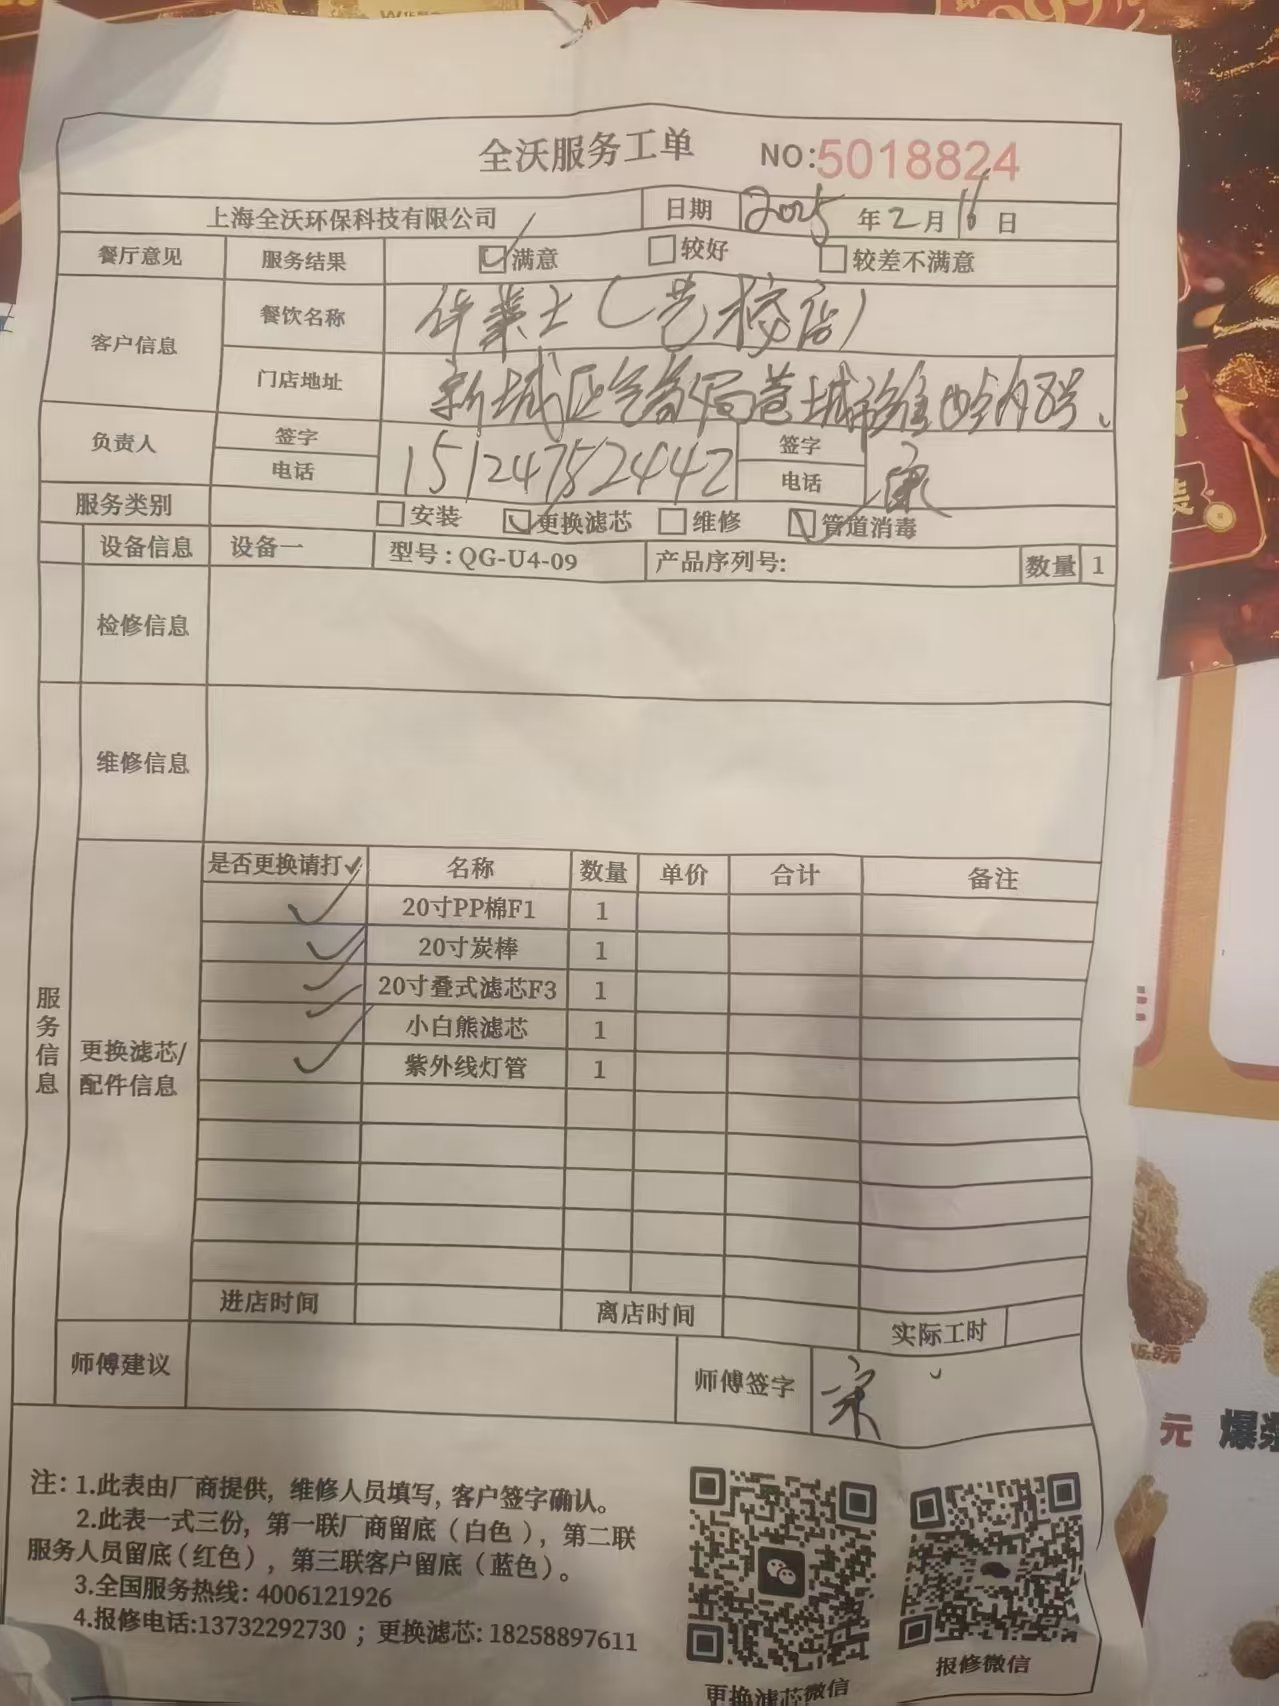 全沃服务工单 NO:5018824
上海全沃环保科技有限公司 日期 2025 年 2 月 16 日
餐厅意见 服务结果 满意 较好 较差不满意
客户信息 餐饮名称 华莱士(艺校店)
门店地址 新城区气象局巷土城 8号
负责人 签字 电话 15124752442 签字 电话
服务类别 安装 更换滤芯 维修 管道消毒
设备信息 设备一 型号:QG-U4-09 产品序列号: 数量 1
检修信息
维修信息
服务信息
更换滤芯/
配件信息
是否更换请打✓ 名称 数量 单价 合计 备注
✓ 20寸PP棉F1 1
✓ 20寸炭棒 1
✓ 20寸叠式滤芯F3 1
✓ 小白熊滤芯 1
✓ 紫外线灯管 1
进店时间 离店时间 实际工时
师傅建议 师傅签字 宋
注:1.此表由厂商提供,维修人员填写,客户签字确认。
2.此表一式三份,第一联厂商留底(白色),第二联
服务人员留底(红色),第三联客户留底(蓝色)。
3.全国服务热线:4006121926
4.报修电话:13732292730 ;更换滤芯:18258897611
更换滤芯微信
报修微信
5.8元
元 爆浆